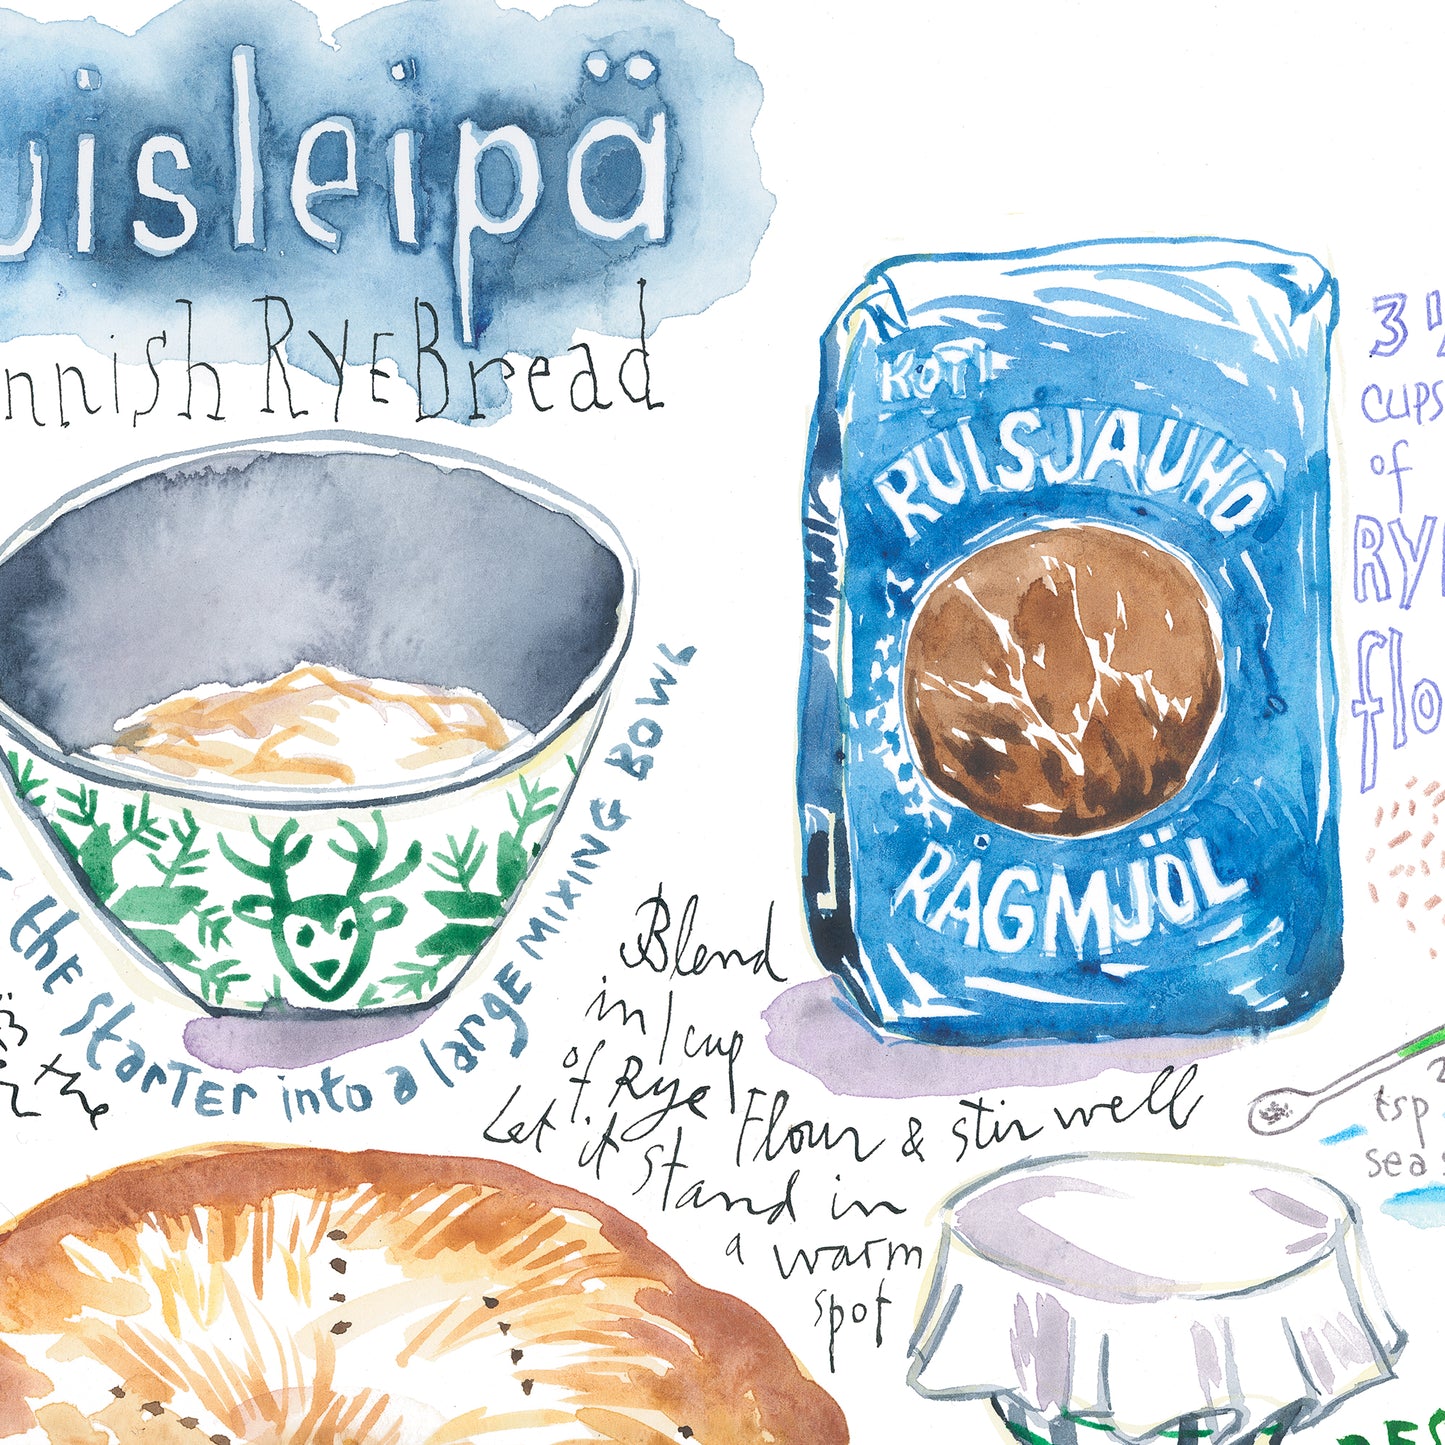 uisleipä
nnish RyE Bread
KOTI
RUISJAUHO
RÅGMJÖL
3 1/
cups
of
RY
flo
the starter into a large mixing bowl
Blend
in 1 cup
of Rye Flour & stir well
Let it stand in
a warm
spot
the
tsp
sea s